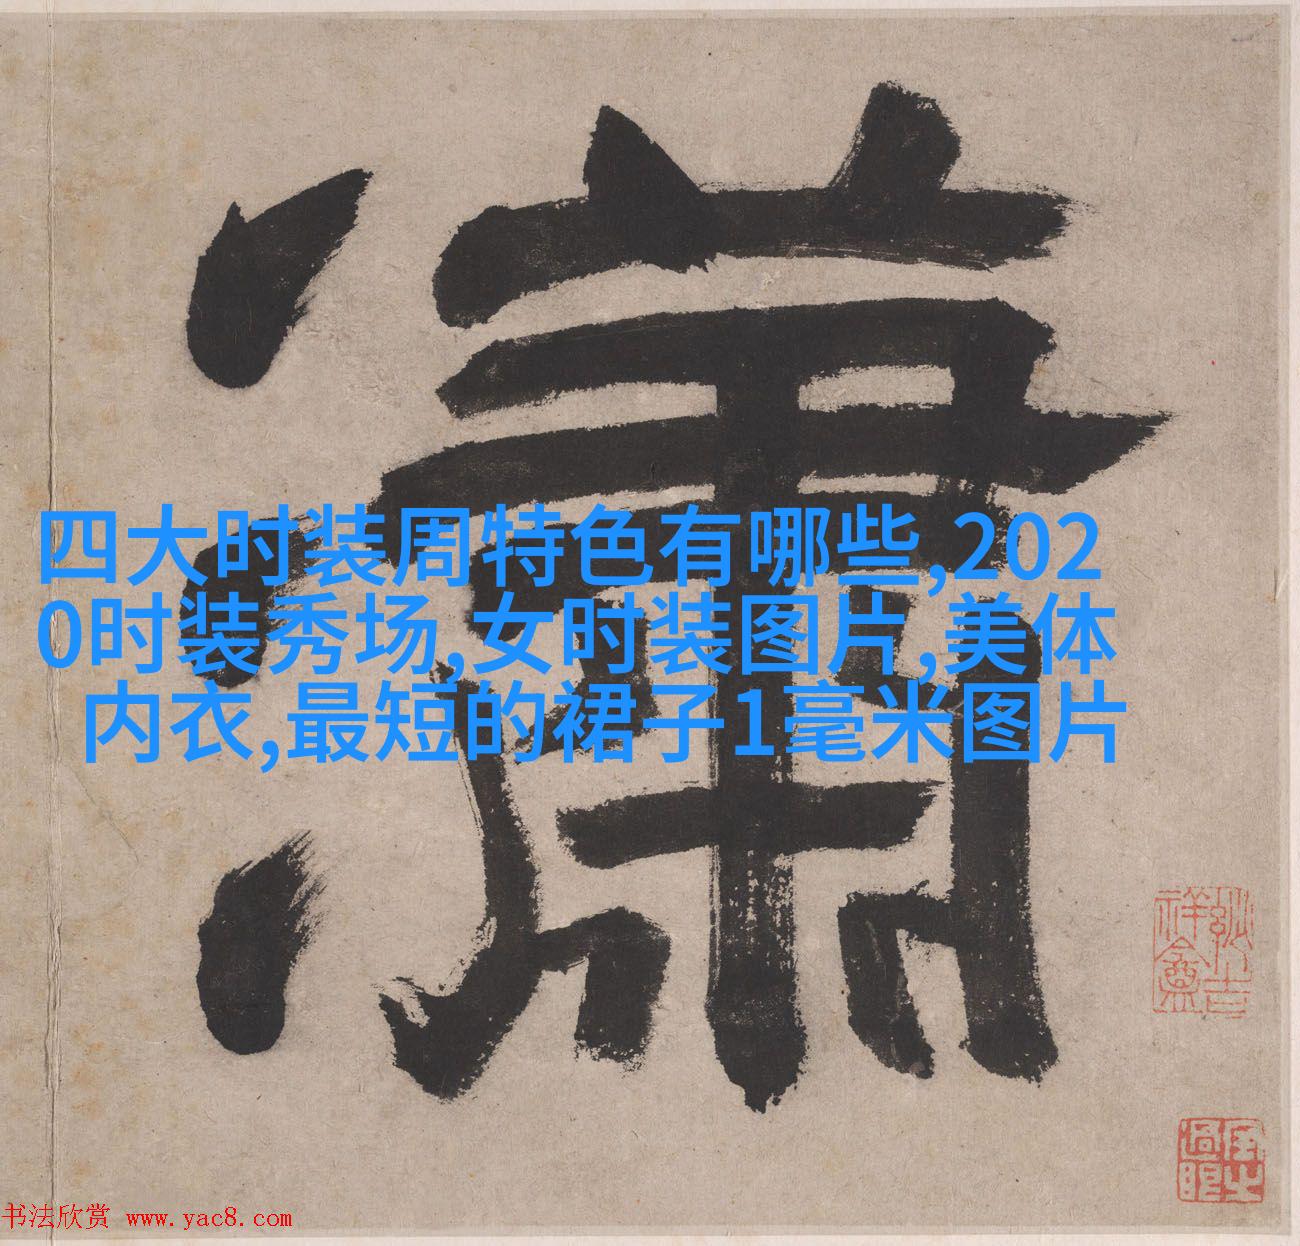 潇
四大时装周特色有哪些,202
0时装秀场,女时装图片,美体
内衣,最短的裙子1毫米图片
书法欣赏 www.yac8.com